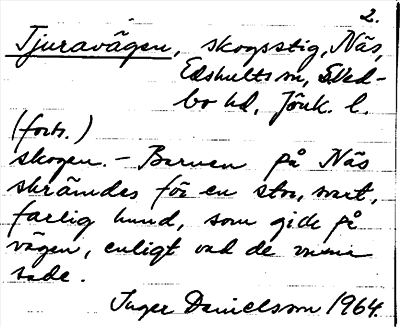 2.
Tjuravägen, skogsstig, Näs,
Edshults sn, S. Ved-
bo hd, Jönk. l.
(forts.)
skogen. - Barnen på Näs
skrämdes för en stor, svart,
farlig hund, som gick på
vägen, enligt vad de vuxna
sade.
Inger Danielsson 1964.